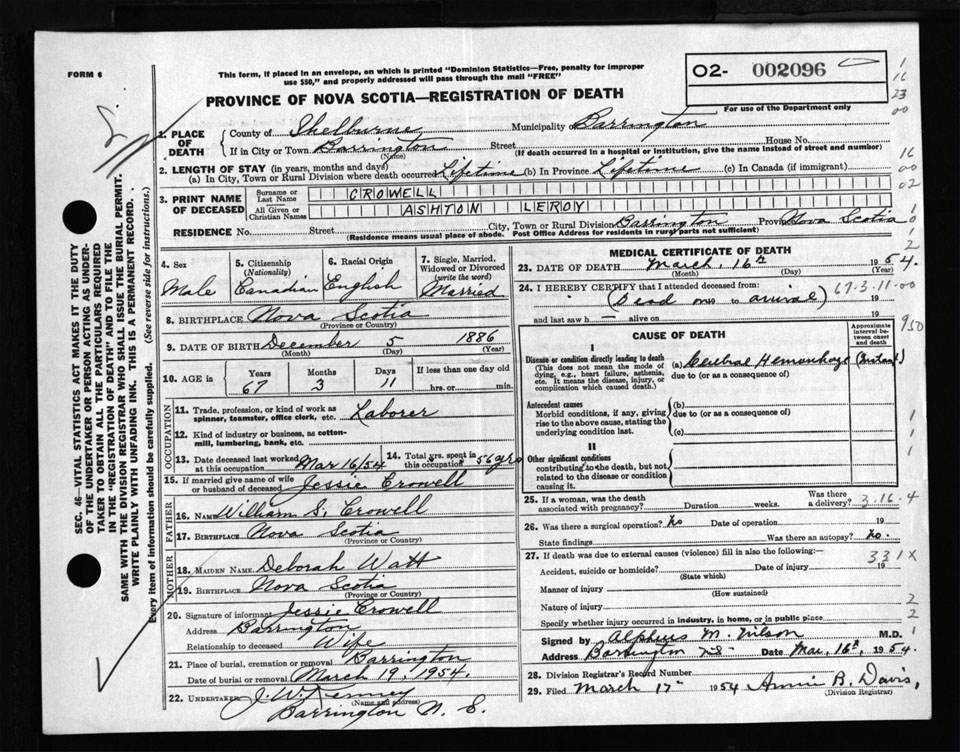 FORM 6
This form, if placed in an envelope, on which is printed "Dominion Statistics—Free, penalty for improper
use $50," and properly addressed will pass through the mail "FREE"
PROVINCE OF NOVA SCOTIA—REGISTRATION OF DEATH
02- 002096
For use of the Department only
1
16
23
00
1. PLACE OF DEATH
County of Shelburne Municipality of Barrington
If in City or Town Barrington Street House No.
(Name) (If death occurred in a hospital or institution, give the name instead of street and number)
2. LENGTH OF STAY (in years, months and days)
(a) In City, Town or Rural Division where death occurred Lifetime (b) In Province Lifetime (c) In Canada (if immigrant)
16
00
02
3. PRINT NAME OF DECEASED
Surname or Last Name CROWELL
All Given or Christian Names ASHTON LEROY
RESIDENCE No. Street City, Town or Rural Division Barrington Province Nova Scotia
(Residence means usual place of abode. Post Office Address for residents in rural parts not sufficient)
4. Sex
Male
5. Citizenship
(Nationality)
Canadian
6. Racial Origin
English
7. Single, Married,
Widowed or Divorced
(write the word)
Married
8. BIRTHPLACE Nova Scotia
(Province or Country)
9. DATE OF BIRTH December 5 1886
(Month) (Day) (Year)
10. AGE in
Years Months Days If less than one day old
67 3 11 hrs. or min.
OCCUPATION
11. Trade, profession, or kind of work as
spinner, teamster, office clerk, etc. Laborer
12. Kind of industry or business, as cotton-
mill, lumbering, bank, etc.
13. Date deceased last worked
at this occupation Mar 16/54
14. Total yrs. spent in
this occupation 56 yrs
15. If married give name of wife
or husband of deceased Jessie Crowell
FATHER
16. NAME William S. Crowell
17. BIRTHPLACE Nova Scotia
(Province or Country)
MOTHER
18. MAIDEN NAME Deborah Watt
19. BIRTHPLACE Nova Scotia
(Province or Country)
20. Signature of informant Jessie Crowell
Address Barrington
Relationship to deceased Wife
21. Place of burial, cremation or removal Barrington
Date of burial or removal March 19, 1954.
22. UNDERTAKER J. W. Kenney
(Name and address)
Barrington N. S.
MEDICAL CERTIFICATE OF DEATH
23. DATE OF DEATH March, 16th 1954.
(Month) (Day) (Year)
24. I HEREBY CERTIFY that I attended deceased from: 67-3-11-00
(Dead on to arrival) 19
and last saw h — alive on 19
950
CAUSE OF DEATH
Approximate
interval be-
tween onset
and death
I
Disease or condition directly leading to death
(This does not mean the mode of
dying, e.g., heart failure, asthenia,
etc. It means the disease, injury, or
complication which caused death.)
(a) Cerebral Hemorrhage (Instant)
due to (or as a consequence of)
Antecedent causes
Morbid conditions, if any, giving
rise to the above cause, stating the
underlying condition last.
(b)
due to (or as a consequence of)
(c)
II
Other significant conditions
contributing to the death, but not
related to the disease or condition
causing it.
25. If a woman, was the death
associated with pregnancy? Duration weeks. Was there
a delivery? 3.16.4
26. Was there a surgical operation? No Date of operation 19
State findings Was there an autopsy? No.
27. If death was due to external causes (violence) fill in also the following:— 331X
Accident, suicide or homicide? Date of injury 19
(State which)
Manner of injury
(How sustained)
Nature of injury
Specify whether injury occurred in industry, in home, or in public place
Signed by Alpheus M. Wilson M.D.
Address Barrington N.S. Date Mar. 16th, 1954.
28. Division Registrar's Record Number
29. Filed March 17th 1954 Annie B. Davis,
(Division Registrar)
SEC. 46—VITAL STATISTICS ACT MAKES IT THE DUTY
OF THE UNDERTAKER OR PERSON ACTING AS UNDER-
TAKER TO OBTAIN ALL THE PARTICULARS REQUIRED
IN THE "REGISTRATION OF DEATH" AND TO FILE THE
SAME WITH THE DIVISION REGISTRAR WHO SHALL ISSUE THE BURIAL PERMIT.
WRITE PLAINLY WITH UNFADING INK. THIS IS A PERMANENT RECORD.
Every item of information should be carefully supplied. (See reverse side for instructions.)